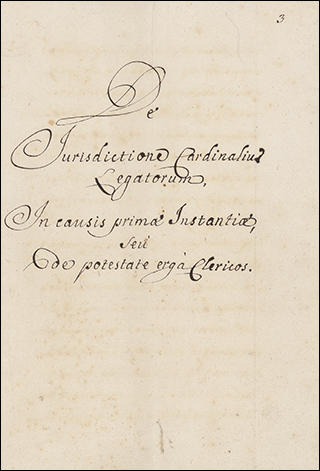 3
De
Jurisdictione Cardinaliũ
Legatorum,
In causis primæ Instantiæ,
seù
de potestate ergà Clericos.